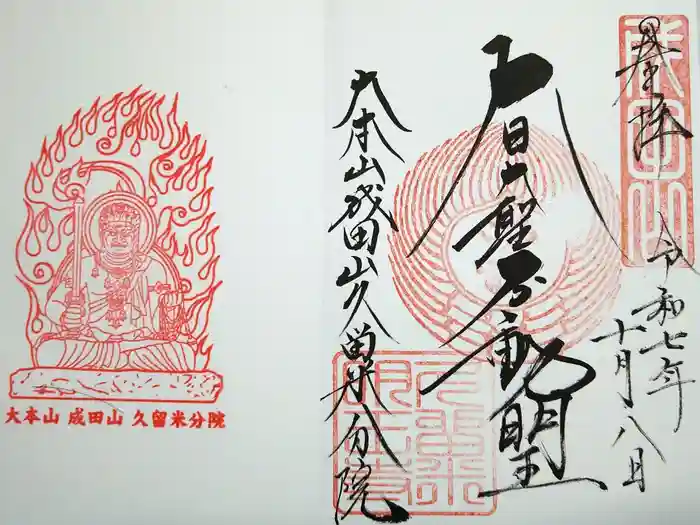 登拝
令和七年
十月八日
大日大聖不動明王
大本山成田山久留米分院
成田山
大本山 成田山 久留米分院